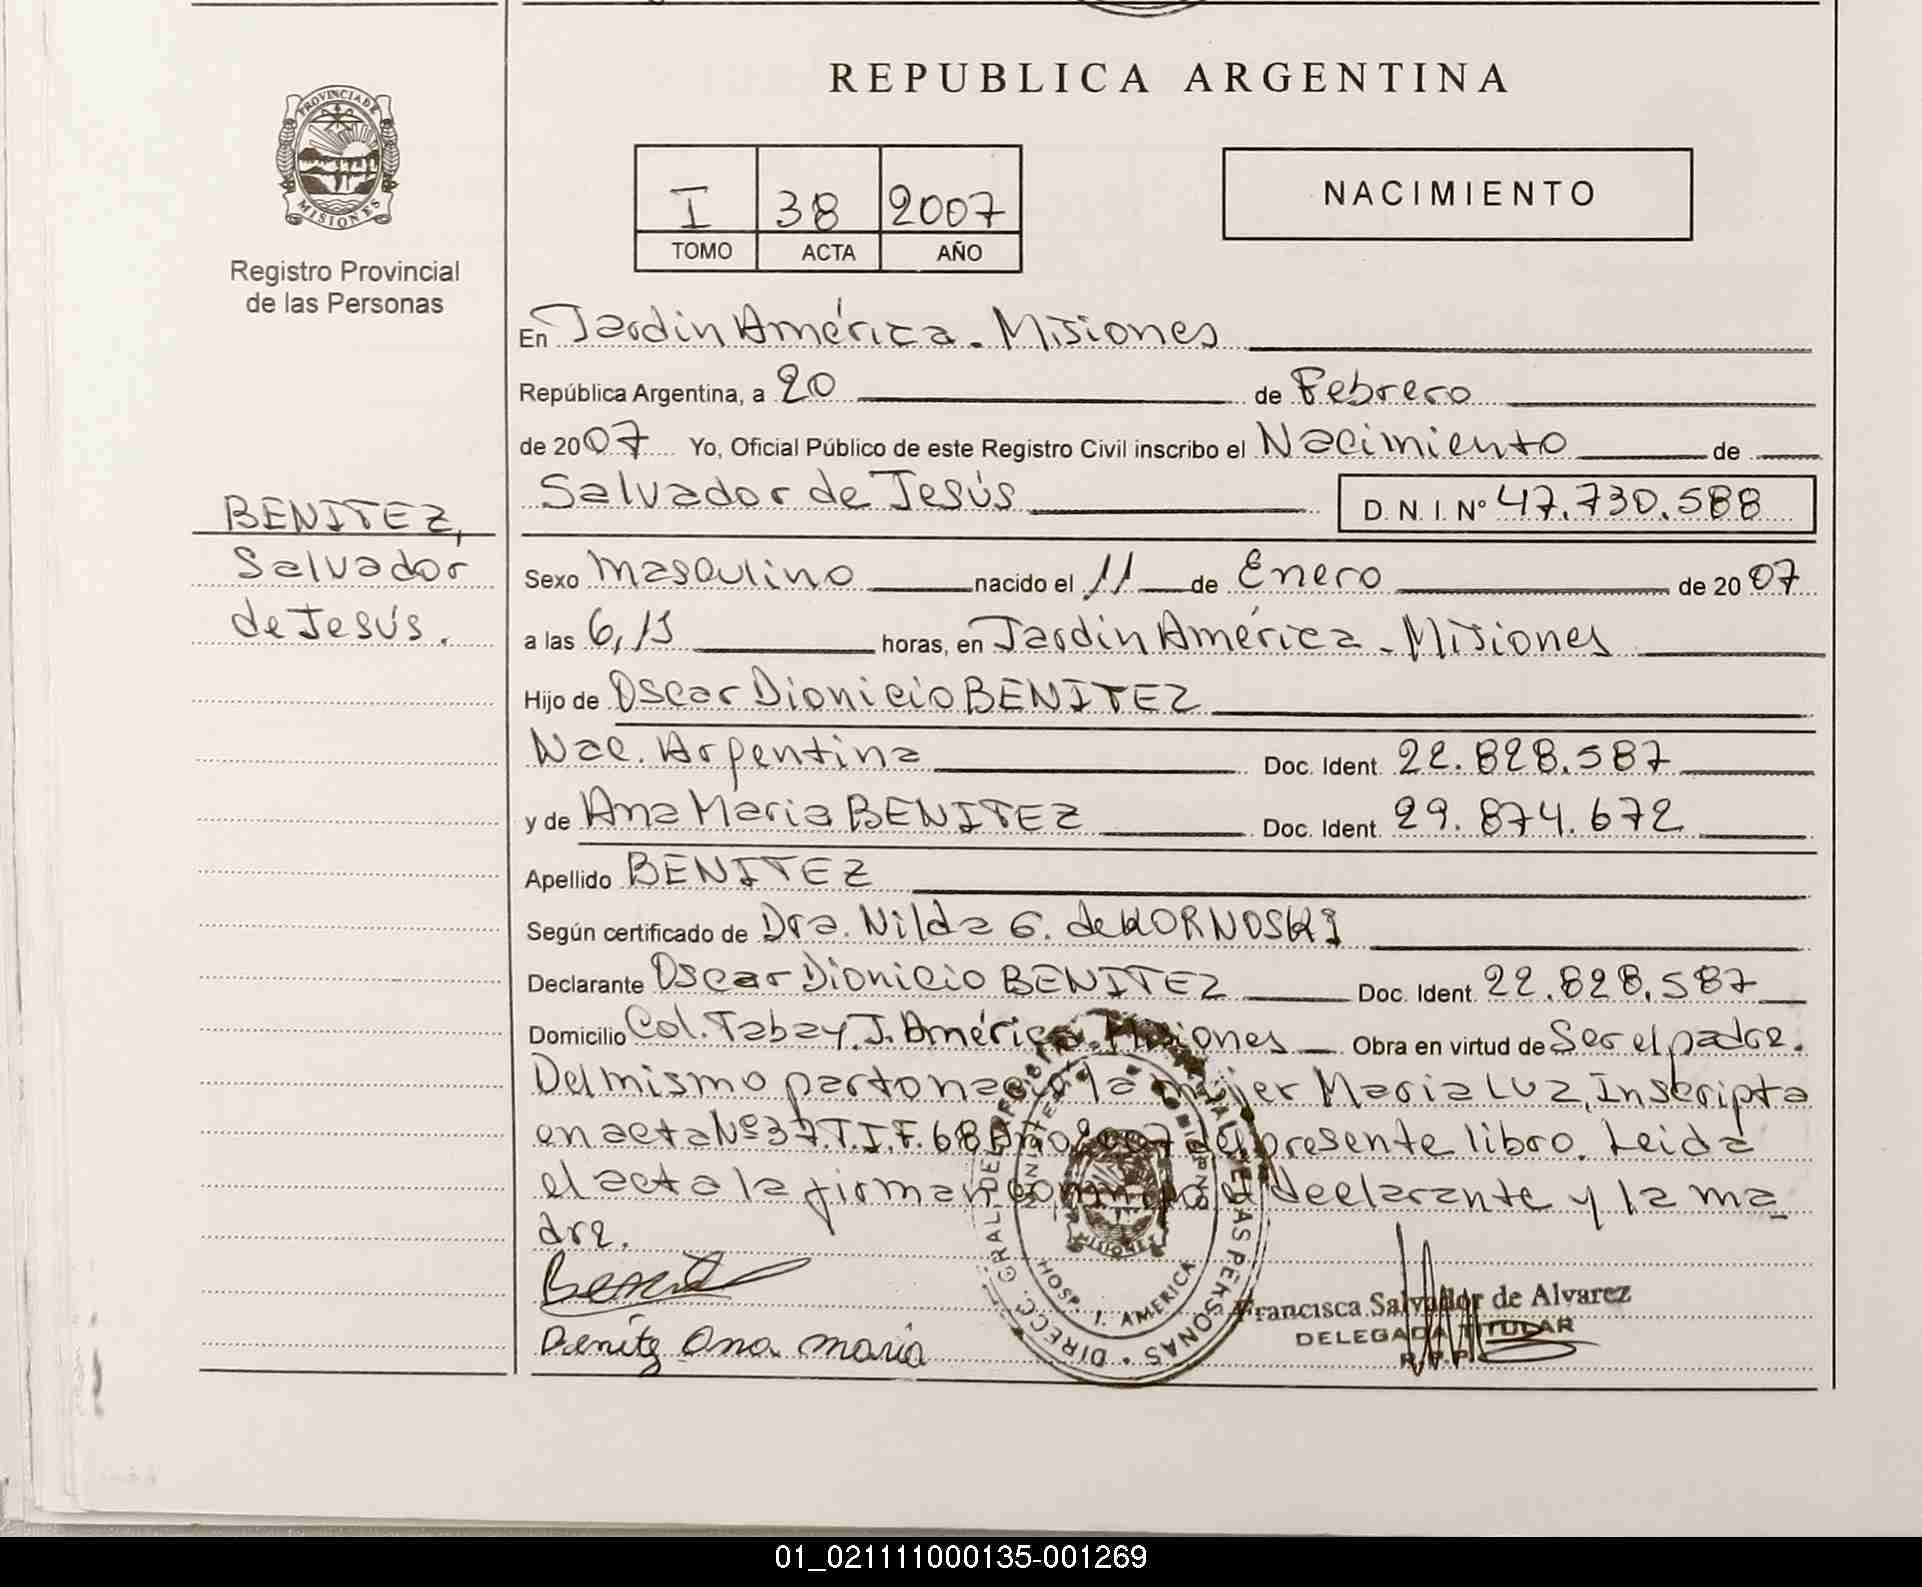 REPUBLICA ARGENTINA
PROVINCIA DE MISIONES
Registro Provincial
de las Personas
I 38 2007
TOMO ACTA AÑO
NACIMIENTO
BENITEZ,
Salvador
de Jesús.
En Jardín América. Misiones
República Argentina, a 20 de Febrero
de 2007 Yo, Oficial Público de este Registro Civil inscribo el Nacimiento de
Salvador de Jesús D. N. I. Nº 47.730.588
Sexo Masculino nacido el 11 de Enero de 2007
a las 6,15 horas, en Jardín América - Misiones
Hijo de Oscar Dionicio BENITEZ
Nac. Argentina Doc. Ident. 22.828.587
y de Ana Maria BENITEZ Doc. Ident. 29.874.672
Apellido BENITEZ
Según certificado de Dra. Nilda G. de KORNOSKI
Declarante Oscar Dionicio BENITEZ Doc. Ident. 22.828.587
Domicilio Col. Tabay, J. América. Misiones Obra en virtud de Ser el padre.
Del mismo parto nació la mujer Maria Luz, Inscripta
en acta Nº 37.T.I.F.68 Año 2007 del presente libro. Leida
el acta la firman conmigo el declarante y la ma-
dre.
Benitez Ana maria
DIRECC. GRAL. DEL REG. PROVINCIAL DE LAS PERSONAS
HOSP. J. AMERICA
MISIONES
Francisca Salvador de Alvarez
DELEGADA TITULAR
R.P.P.
01_021111000135-001269